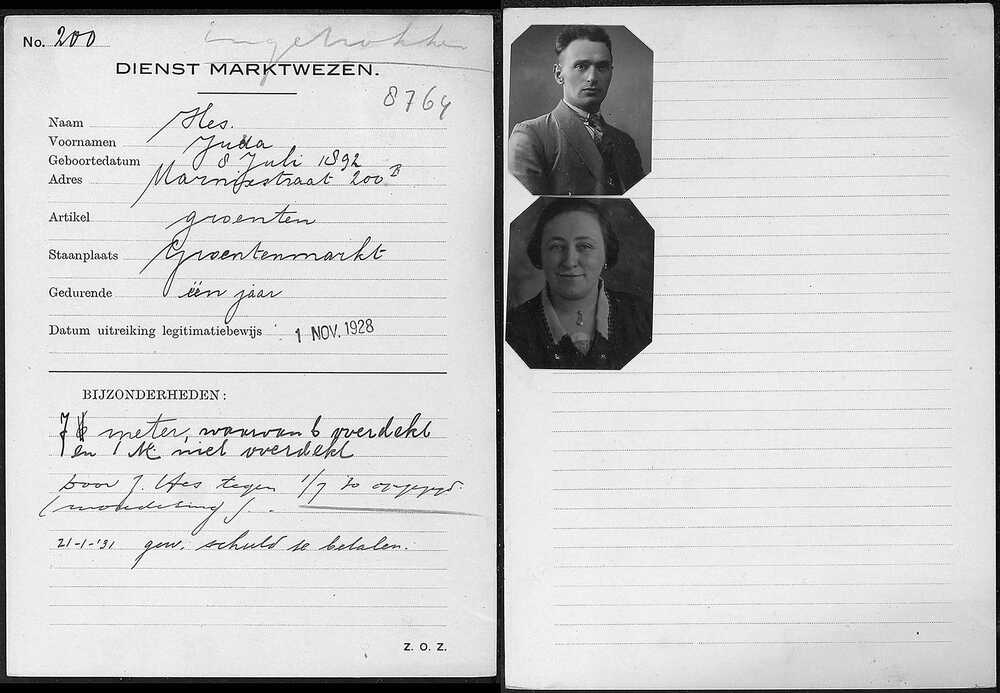 No. 200
ingetrokken
DIENST MARKTWEZEN.
8764
Naam Hes.
Voornamen Juda
Geboortedatum 8 Juli 1892
Adres Marnixstraat 200 B
Artikel groenten
Staanplaats Groentenmarkt
Gedurende één jaar
Datum uitreiking legitimatiebewijs : 1 NOV. 1928
BIJZONDERHEDEN:
7 meter, waarvan 6 overdekt
en 1 M. niet overdekt
Door J. Hes tegen 1/7 30 opgezegd.
(mondeling).
21-1-'31 gew. schuld te betalen.
Z. O. Z.